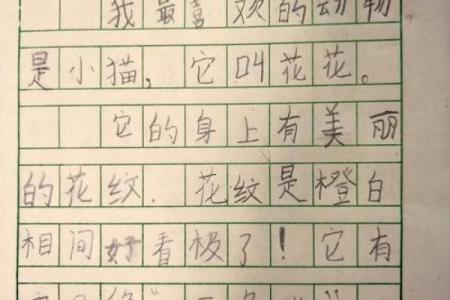 我最喜欢的动物,
是小猫,它叫花花。
它的身上有美丽
的花纹.花纹是橙白
相间好看极了!它有